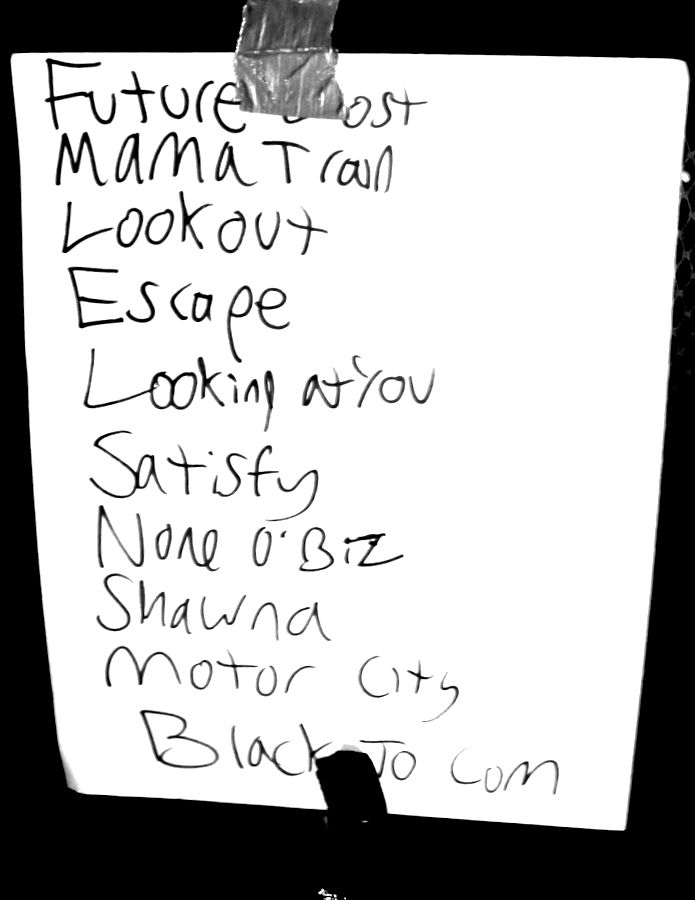 Future
Mama Train
Lookout
Escape
Looking at You
Satisfy
None O' Biz
Shawna
Motor City
Black To Com